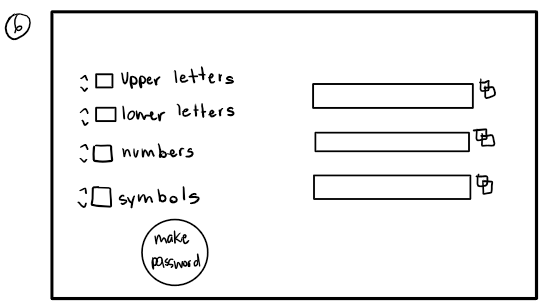 6
Upper letters
lower letters
numbers
symbols
make
password